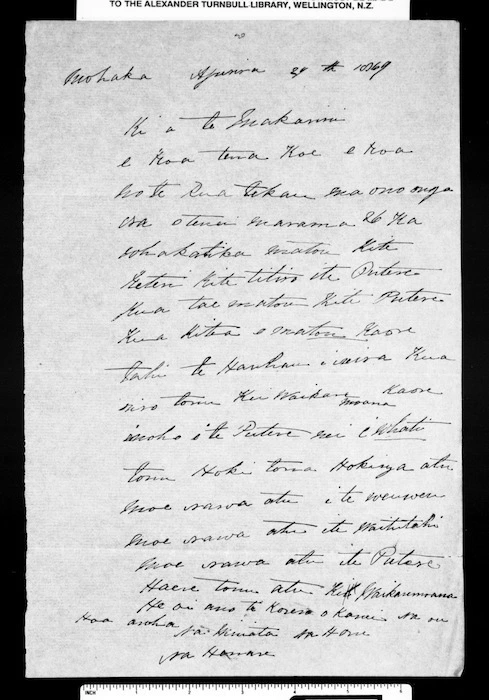 TO THE ALEXANDER TURNBULL LIBRARY, WELLINGTON, N.Z.
Mohaka Aperira 29 th 1869
Ki a te Makarini
e Hoa tena Koe e Hoa
no te Rua tekau ma ono onga
ra o tenei marama 26 Ka
whakatika matou Kite
Keteri Kite titiro ite Putere
Kua tae matou Kite Putere
Kua Kitea e matou Kaore
tahi te Hauhau i reira Kua
riro tonu Kei Waikare moana Kaore
i noho i te Putere nei i Whati
tonu Hoki tona Hokinga atu
moe rawa atu i te
moe rawa atu ite Waitutahi
moe rawa atu ite Putere
Haere tonu atu Kite Waikaremoana
He oi ano te Korero o Kanei na ou
Hoa aroha Na na Hone
na Henare
INCH 1 2 3 4 5 6 7